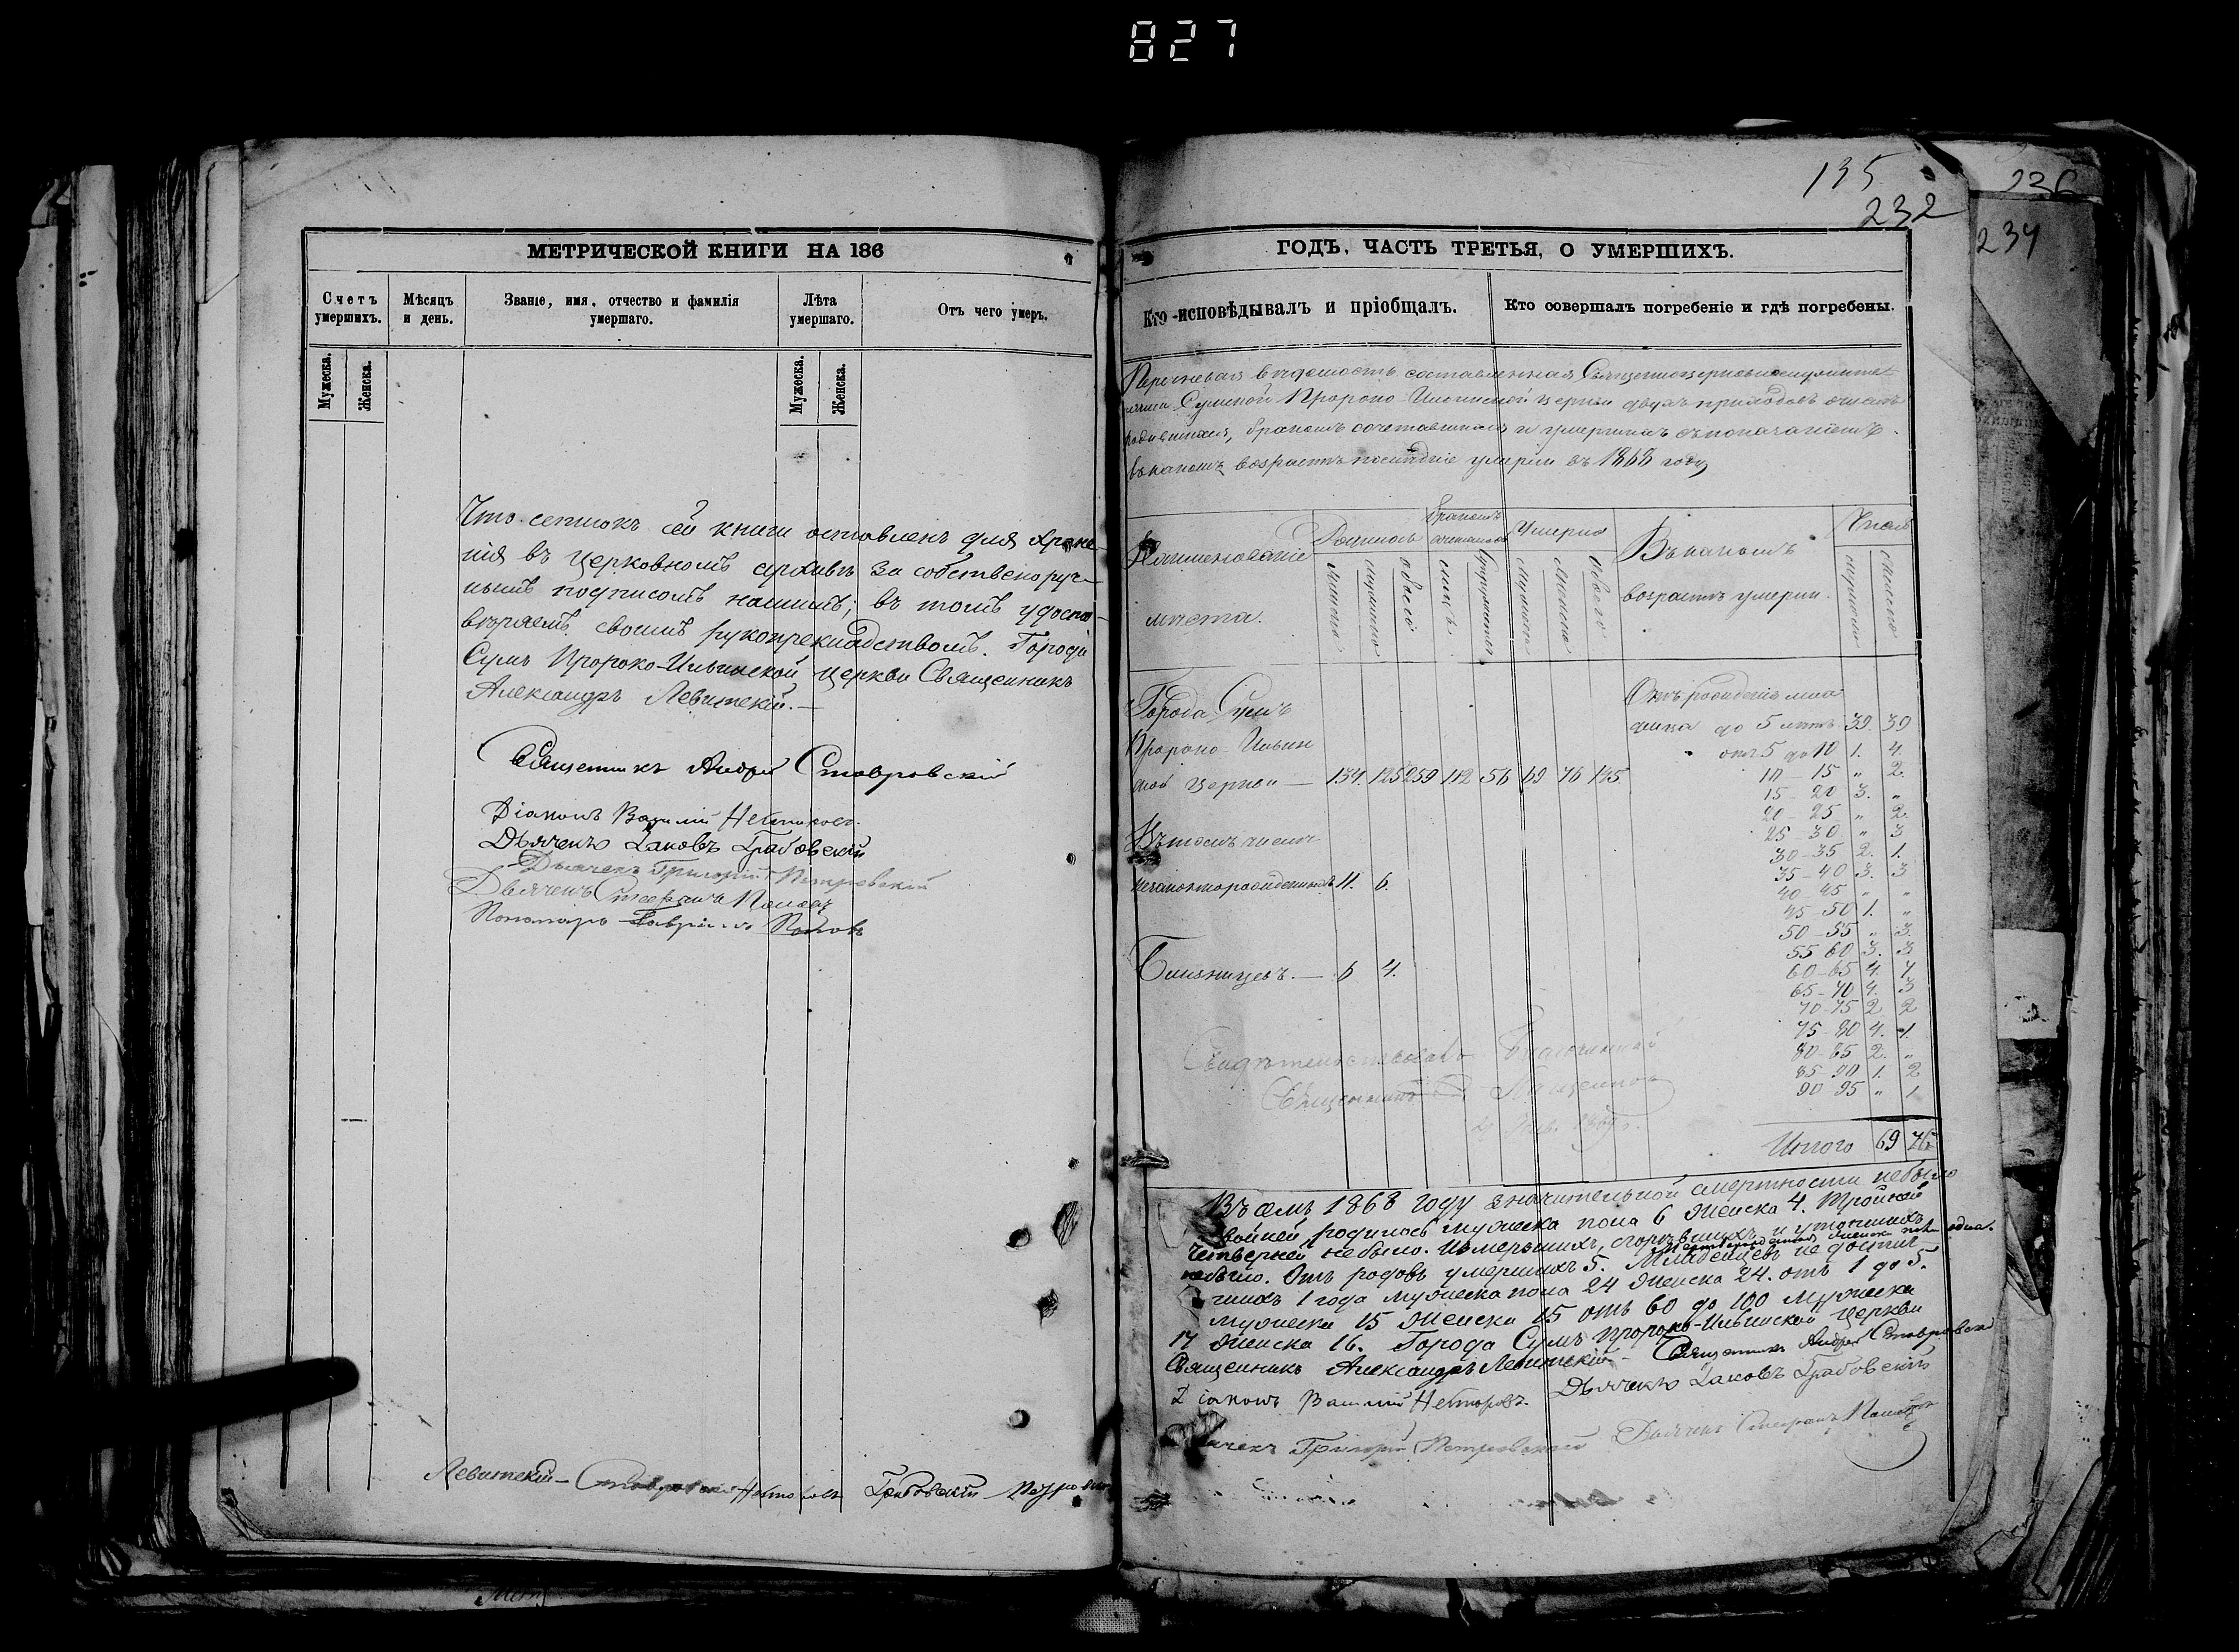 827
МЕТРИЧЕСКОЙ КНИГИ НА 186
Счетъ умершихъ.
Мѣсяцъ и день.
Званіе, имя, отчество и фамилія умершаго.
Лѣта умершаго.
Отъ чего умеръ.
Мужеска.
Женска.
Мужеска.
Женска.
Что списокъ сей книги оставленъ для хране-
нія въ церковномъ архивѣ за собственоруч-
нымъ подписомъ нашимъ; въ томъ удосто-
вѣряемъ своимъ рукоприкладствомъ. Города
Сумъ Пророко-Ильинской церкви Священникъ
Александръ Левитскій.—
Священникъ Андрей Ставровскій
Діаконъ Василій
Дьячекъ Іаковъ Грабовскій
Дьячекъ Григорій Петровскій
Дьячекъ Стефанъ Поповъ
Пономарь Гавріилъ Поповъ
Левитскій— Ставровскій Грабовскій
135
232
236
234
ГОДЪ, ЧАСТЬ ТРЕТЬЯ, О УМЕРШИХЪ.
Кто исповѣдывалъ и пріобщалъ.
Кто совершалъ погребеніе и гдѣ погребены.
Перечневая вѣдомость составленная Священноцерковнослужите-
лями Сумской Пророко-Ильинской церкви двухъ приходовъ о числѣ
родившихся, бракомъ сочетавшихся и умершихъ съ показаніемъ
въ какомъ возрастѣ послѣдніе умерли въ 1868 году
Наименованіе мѣста.
Родилось
Бракомъ
Умерло
Въ какомъ возрастѣ умерли.
Число
Города Сумъ
Пророко-Ильин
ской церкви — 134. 125 259 112 56 69 76 145
Отъ рожденія мла
денца до 5 лѣтъ 39. 39
отъ 5 до 10 1. 4.
10 — 15 „ 2.
15 — 20 3. „
20 — 25 „ 2.
25 — 30 „ 3
30 — 35 2. 1.
35 — 40 3. 3
40 — 45 „ „
45 — 50 1. „
50 — 55 „ 3.
55 60 3. 3
60 — 65 4. 7
65 — 70 4. 3
70 — 75 2 2
75 — 80 4. 1.
80 — 85 2. „
85 90 1. 2
90 95 „ 1
Итого 69 76
Въ томъ числѣ
незаконнорожденныхъ 11. 6.
Близнецовъ. — 6 4.
Свидѣтельствовалъ Благочинный
Священникъ
Въ семъ 1868 году значительной смертности небыло
двойней родилось мужеска пола 6 женска 4. Тройней
четверней небыло. Измерзшихъ, сгорѣвшихъ и утоншихъ
небыло. Отъ родовъ умершихъ 5. Младенцевъ не достиг-
шихъ 1 года мужеска пола 24 женска 24. отъ 1 до 5.
мужеска 15 женска 15 отъ 60 до 100 мужеска
17 женска 16. Города Сумъ Пророко-Ильинской церкви
Священникъ Александръ Левитскій— Священникъ Андрей Ставровскій
Діаконъ Василій Дьячекъ Іаковъ Грабовскій
Дьячекъ Григорій Петровскій Дьячекъ Стефанъ Поповъ